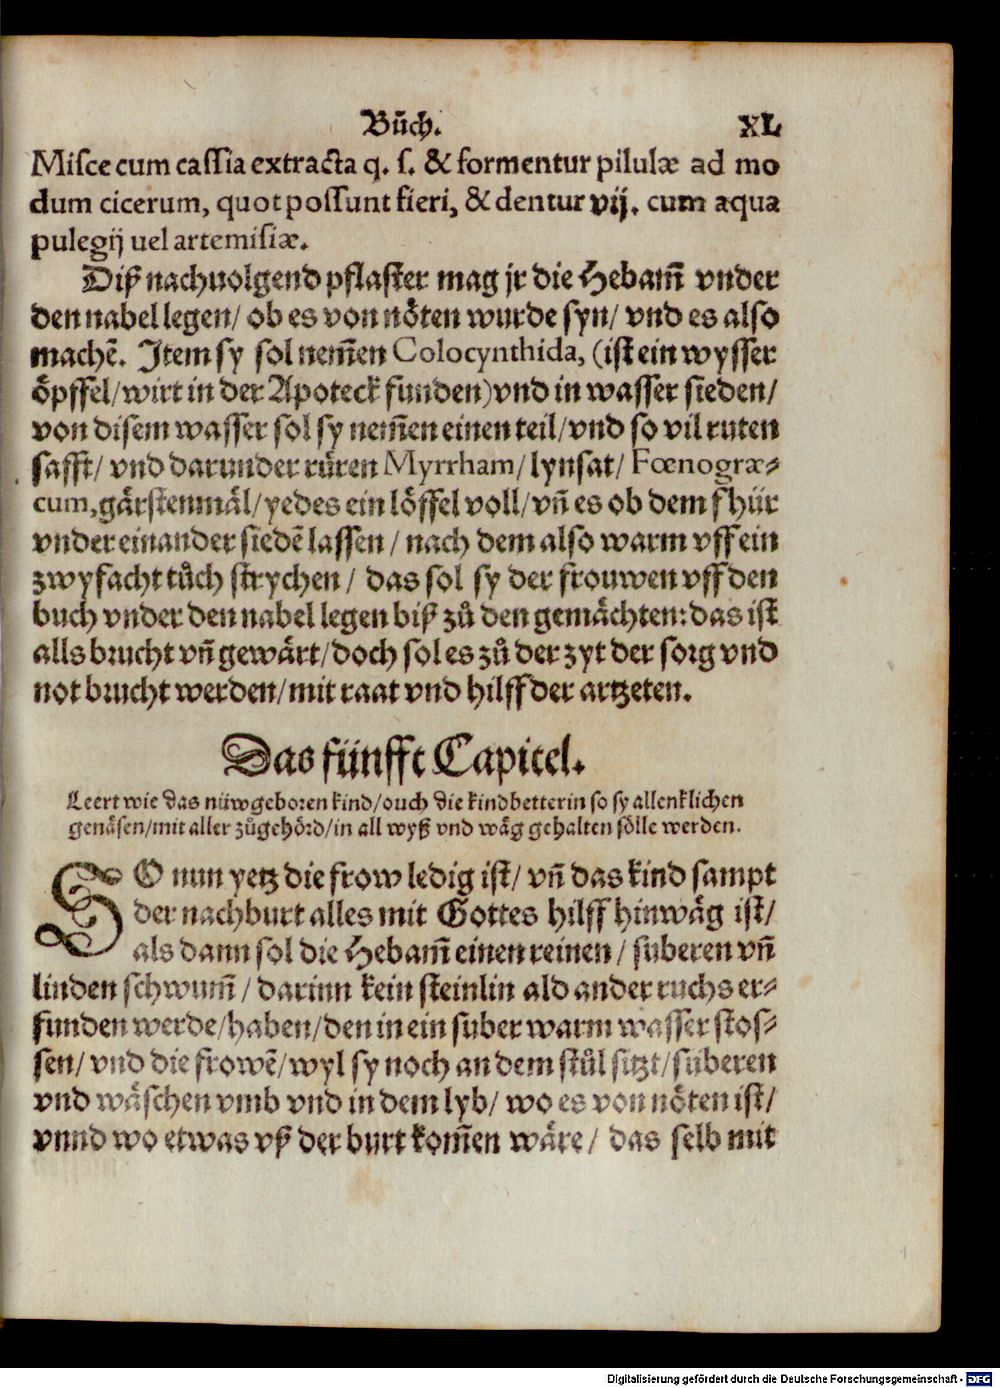 Bůch. XL
Misce cum cassia extracta q. s. & formentur pilulæ ad mo
dum cicerum, quot possunt fieri, & dentur vij. cum aqua
pulegij uel artemisiæ.
Diß nachuolgend pflaster mag jr die Hebam̄ vnder
den nabel legen/ ob es von nöten wurde syn/ vnd es also
machē. Item sy sol nem̄en Colocynthida, (ist ein wysser
öpffel/wirt in der Apoteck funden)vnd in wasser sieden/
von disem wasser sol sy nem̄en einen teil/vnd so vil ruten
safft/ vnd darunder rüren Myrrham/ lynsat/ Fœnogræ-
cum,gärstenmäl/yedes ein löffel voll/vñ es ob dem fhür
vnder einander siedē lassen/ nach dem also warm vff ein
zwyfacht tůch strychen/ das sol sy der frouwen vff den
buch vnder den nabel legen biß zů den gemächten:das ist
alls brucht vñ gewärt/doch sol es zů der zyt der sorg vnd
not brucht werden/mit raat vnd hilff der artzeten.
Das fünfft Capitel.
Leert wie das nüwgeboren kind/ouch die kindbetterin so sy allenklichen
genäsen/mit aller zůgehörd/in all wyß vnd wäg gehalten sölle werden.
SO nun yetz die frow ledig ist/ vñ das kind sampt
der nachburt alles mit Gottes hilff hinwäg ist/
als dann sol die Hebam̄ einen reinen/ suberen vñ
linden schwum̄/ darinn kein steinlin ald ander ruchs er-
funden werde/haben/den in ein suber warm wasser stos-
sen/ vnd die frowē/wyl sy noch an dem stůl sitzt/süberen
vnd wäschen vmb vnd in dem lyb/ wo es von nöten ist/
vnnd wo etwas vß der burt kom̄en wäre/ das selb mit
Digitalisierung gefördert durch die Deutsche Forschungsgemeinschaft - DFG